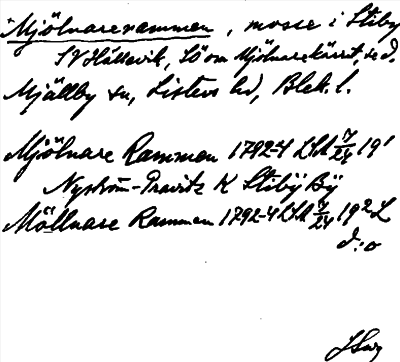 *Mjölnarerammen, mosse i Stiby
SV Hällevik, SO om Mjölnarekärret, se d.
Mjällby sn, Listers hd, Blek. l.
Mjölnare Rammen 1792-4 LSA 7/24 19¹
Nyström-Pravitz K Stibÿ Bÿ
Möllnare Rammen 1792-4 LSA 7/24 19² L
d:o